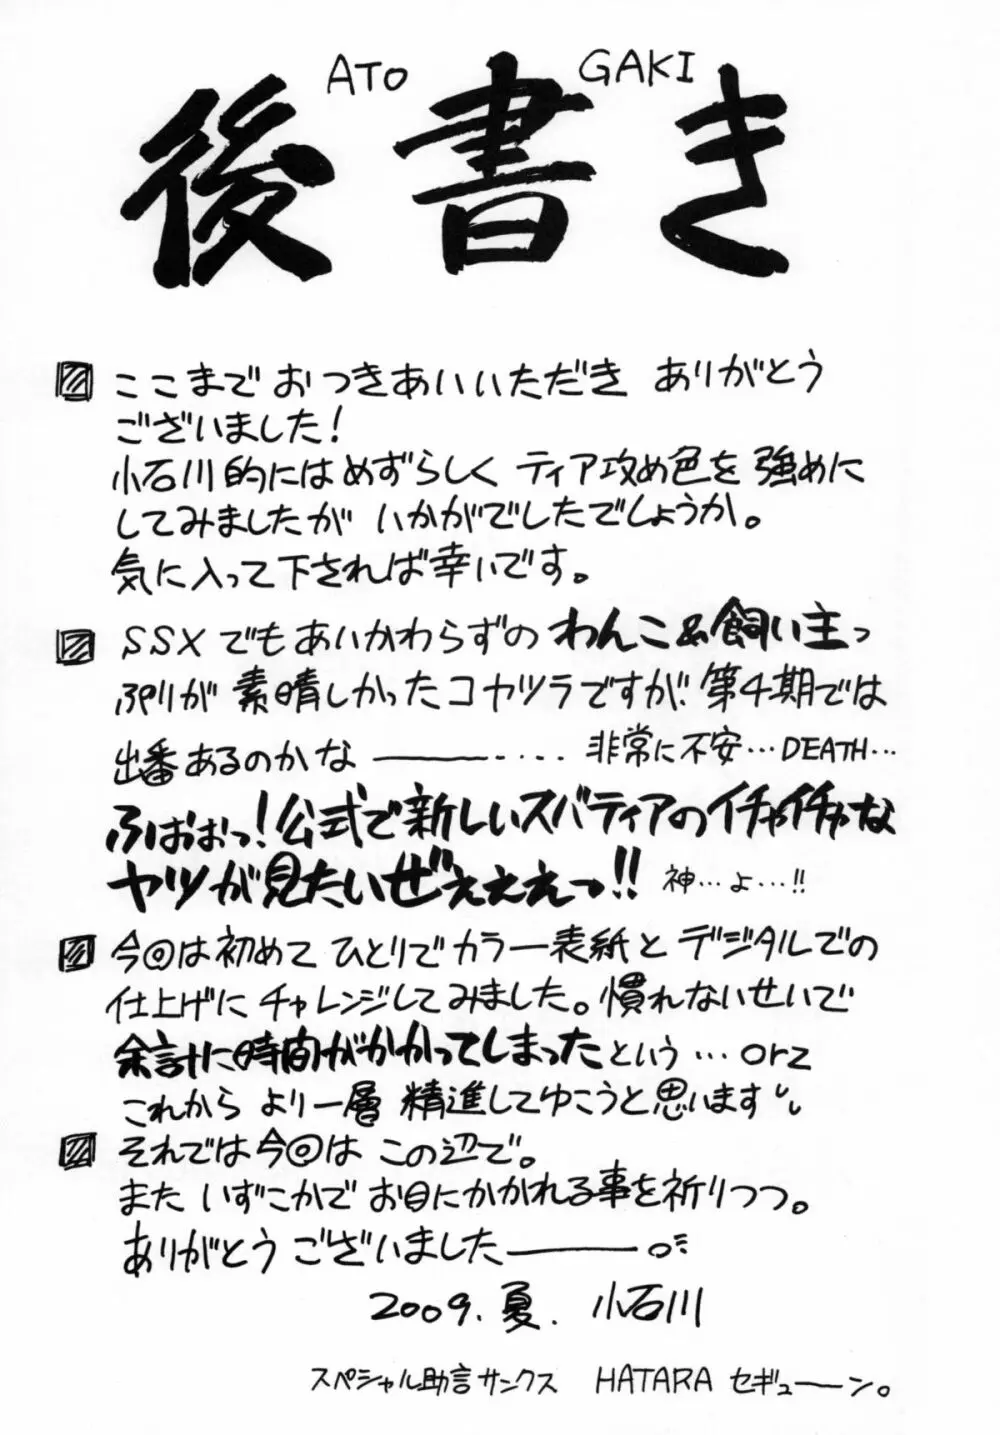 ATO GAKI
後書き
ここまで おつきあいいただき ありがとう
ございました！
小石川的にはめずらしく ティア攻め色を 強めに
してみましたが いかがでしたでしょうか。
気に入って下されば幸いです。
SSXでもあいかわらずの わんこ&飼い主っ
ぷりが 素晴しかったコヤツラですが、第4期では
出番あるのかな ———‥‥ 非常に不安…DEATH…
ふおおっ！公式で新しいスバティアのイチャイチャな
ヤツが見たいぜぇぇえっ!! 神…よ…!!
今回は初めて ひとりでカラー表紙と デジタルでの
仕上げに チャレンジしてみました。慣れないせいで
余計に時間がかかってしまったという…orz
これから より一層 精進してゆこうと思います
それでは今回は この辺で。
また いずこかで お目にかかれる事を祈りつつ。
ありがとう ございました———。
2009.夏. 小石川
スペシャル助言サンクス HATARA セギューーン。